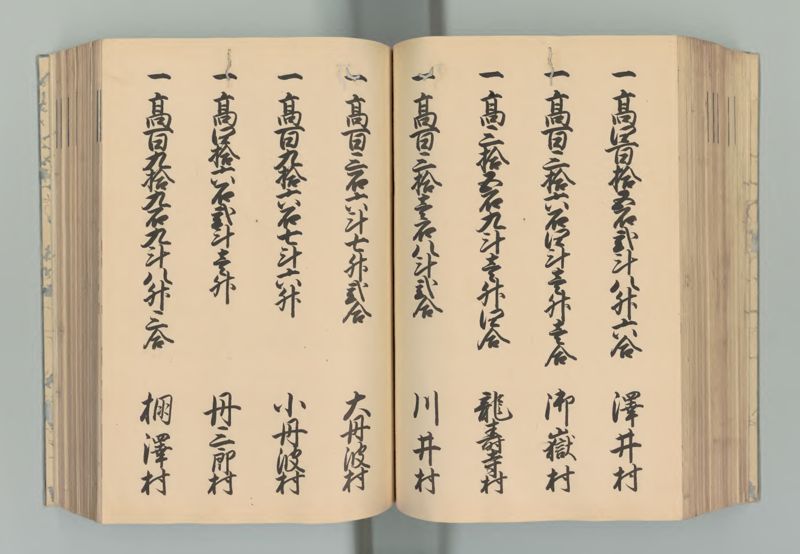 一 高四百拾五石弐斗八升六合 澤井村
一 高百三拾六石四斗壱升壱合 御嶽村
一 高三拾五石九斗壱升四合 龍壽寺村
一 高百三拾壱石八斗弐合 川井村
一 高百三石六斗七升弐合 大丹波村
一 高百九拾六石七斗六升 小丹波村
一 高四拾六石弐斗壱升 丹三郎村
一 高百九拾九石九斗八升三合 棚澤村